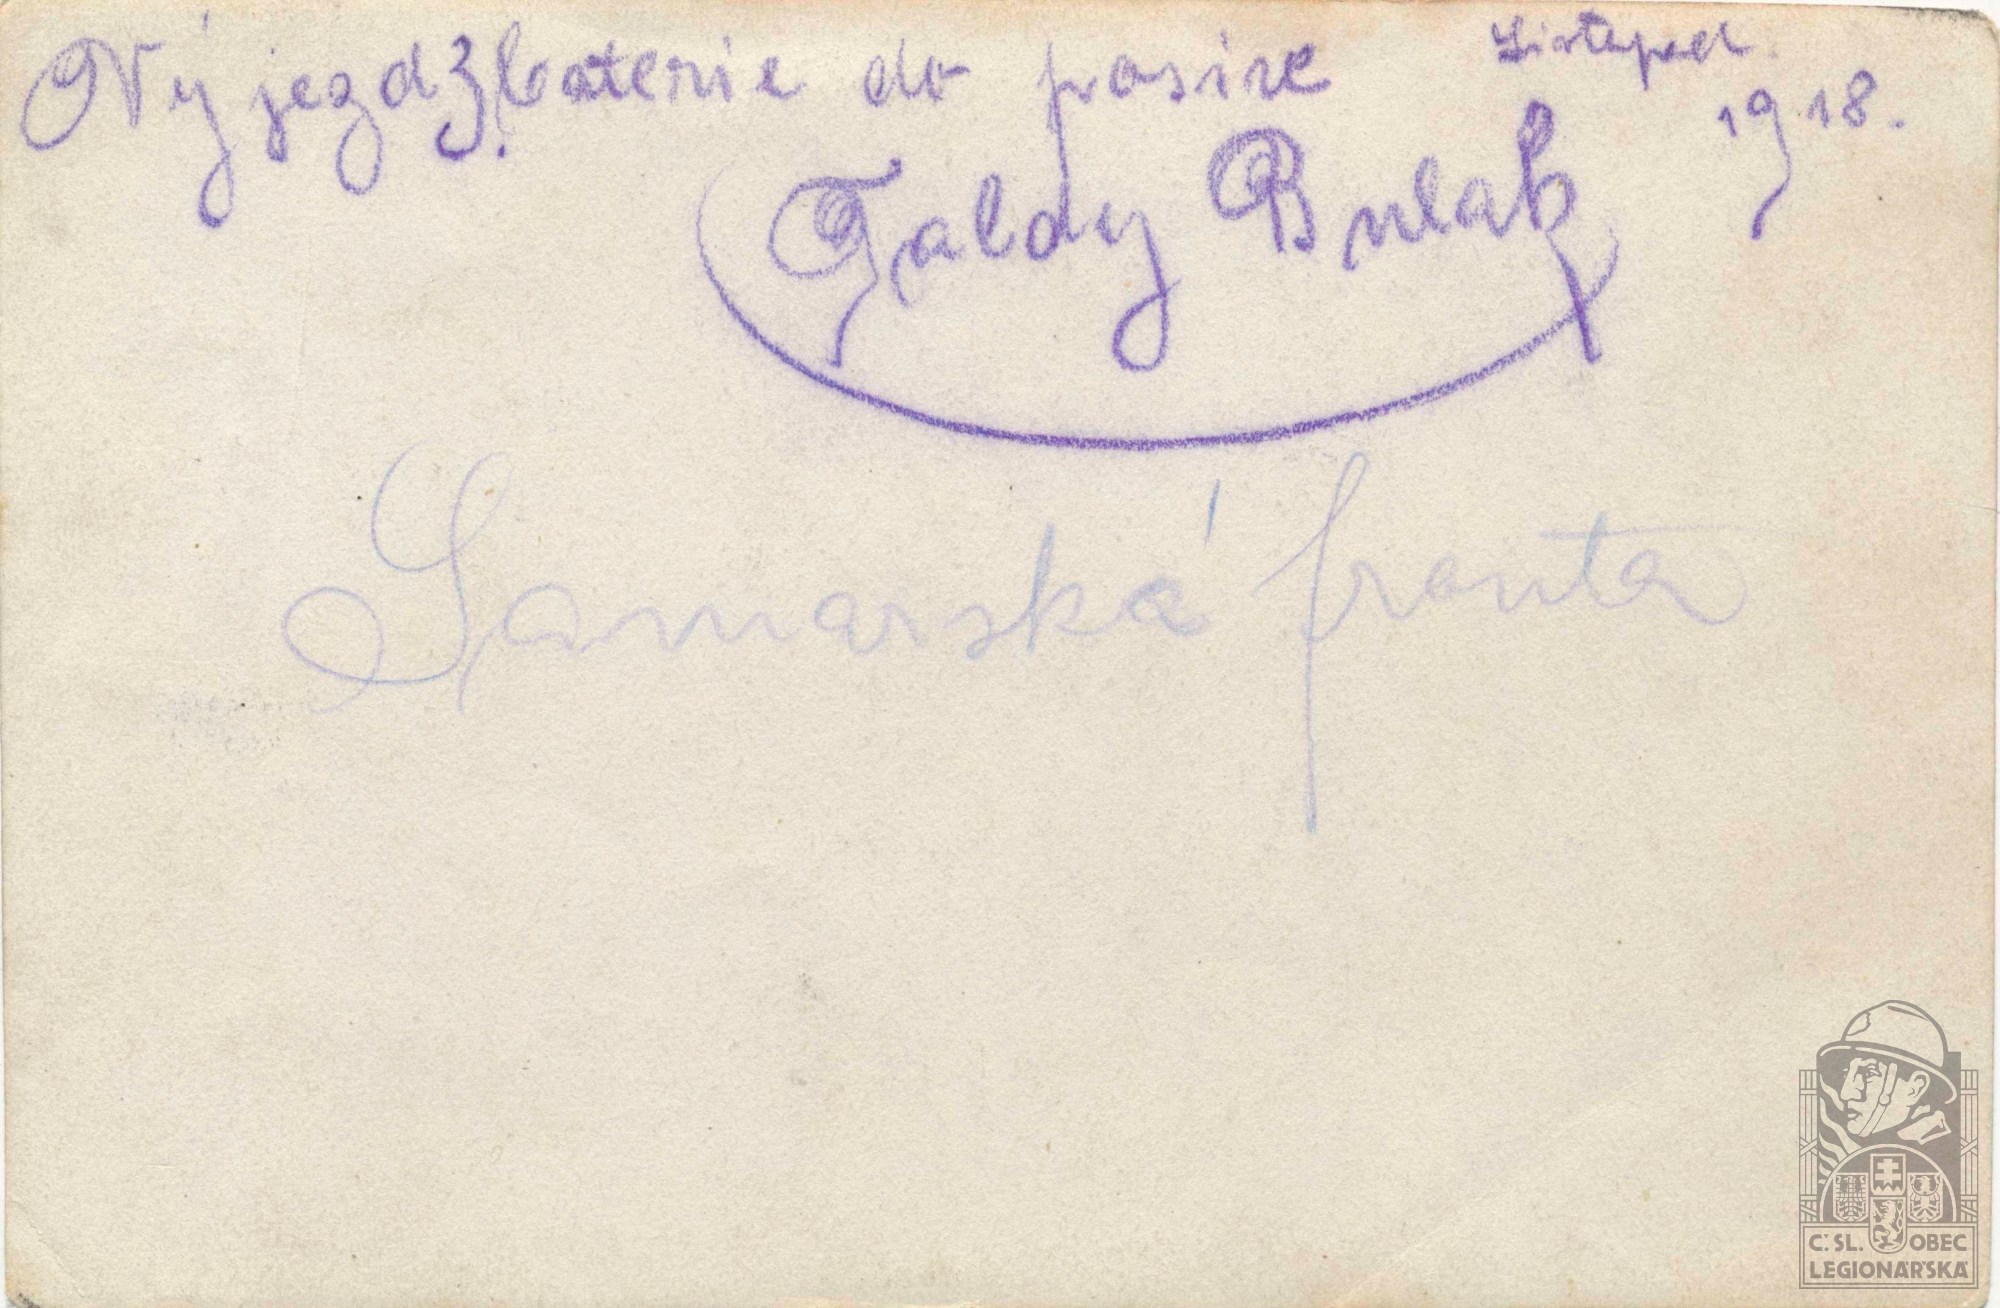 Výjezd 3. baterie do posice Listopad
1918.
Taldy Bulak
Samarská fronta
Č. SL. OBEC
LEGIONÁŘSKÁ